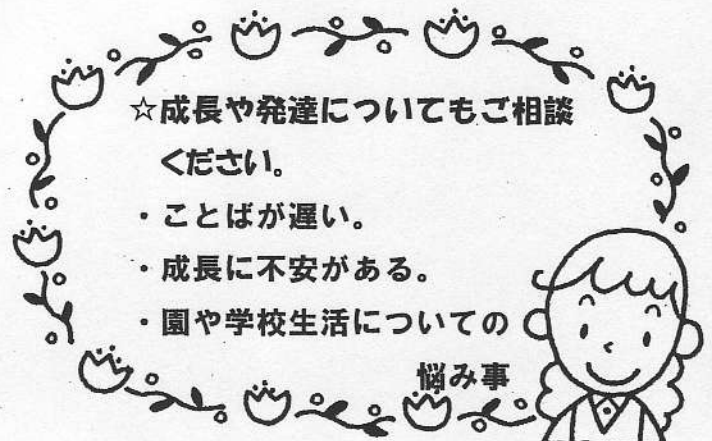 ☆成長や発達についてもご相談
ください。
・ことばが遅い。
・成長に不安がある。
・園や学校生活についての
悩み事